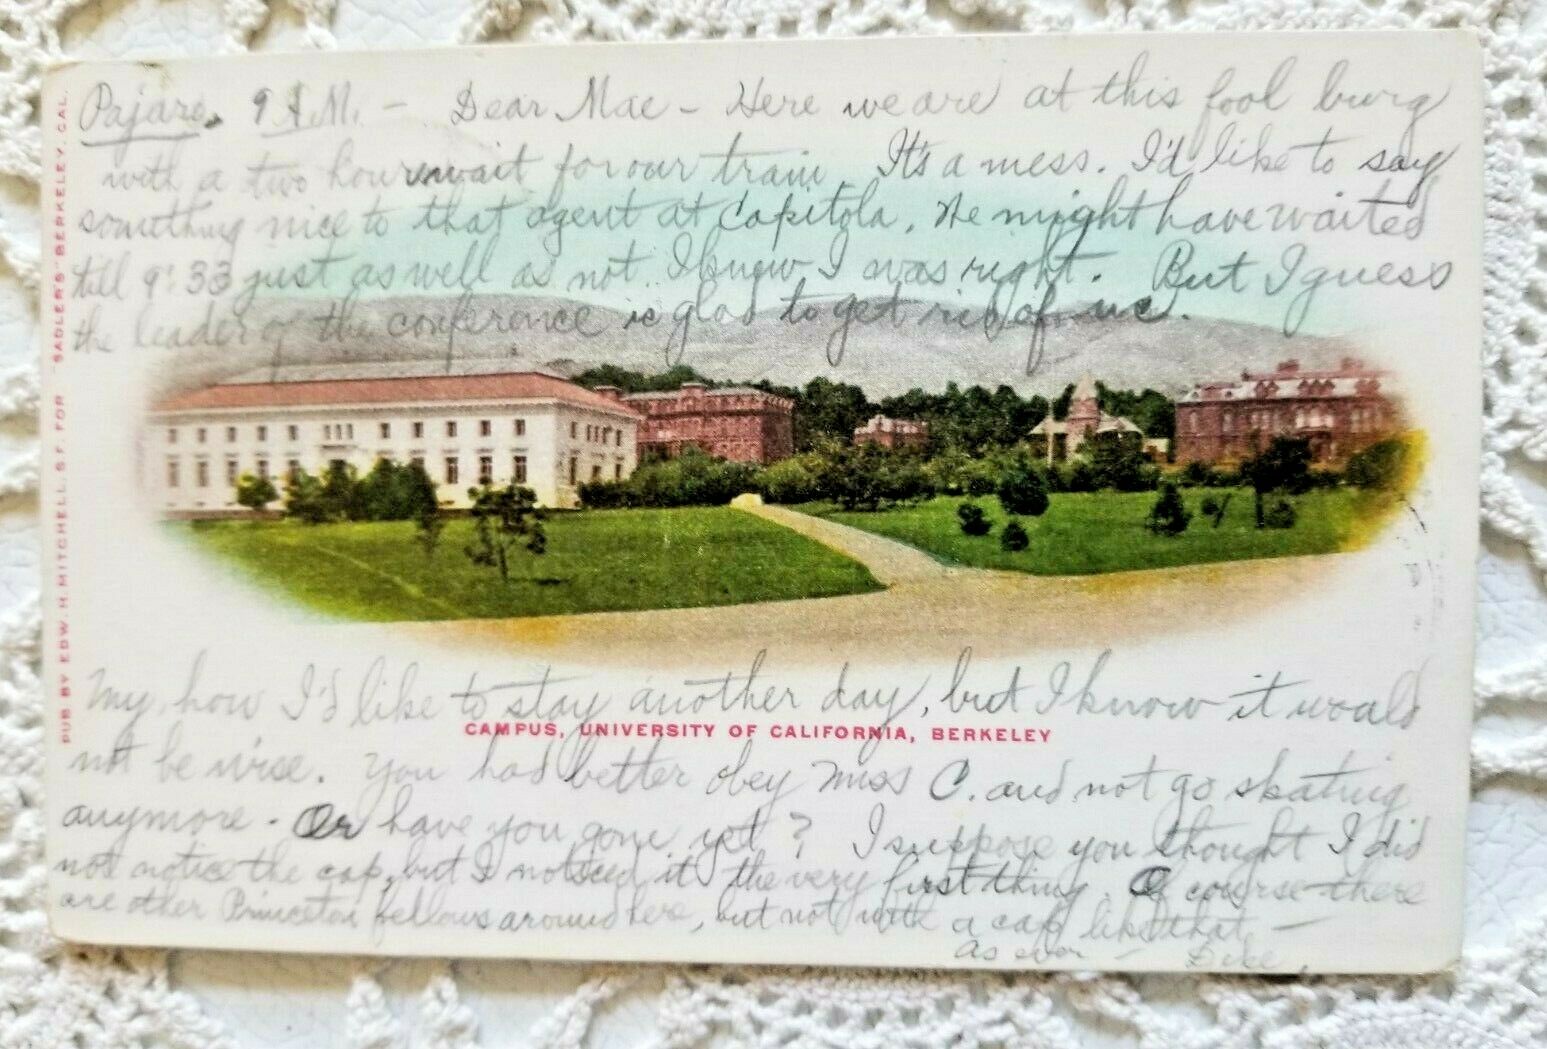 Pajaro, 9 A.M. - Dear Mae - Here we are at this fool burg
with a two hour wait for our train. It's a mess. I'd like to say
something nice to that agent at Capitola. He might have waited
till 9:33 just as well as not. I knew I was right. But I guess
the leader of the conference is glad to get rid of us.
My, how I'd like to stay another day, but I know it would
CAMPUS, UNIVERSITY OF CALIFORNIA, BERKELEY
not be wise. You had better obey Miss C. and not go skating
anymore. Or have you gone yet? I suppose you thought I did
not notice the cap, but I noticed it the very first thing. Of course there
are other Princeton fellows around here, but not with a cap like that -
As ever -
PUB BY EDW. H. MITCHELL, S.F. FOR "SADLER'S" BERKELEY, CAL.